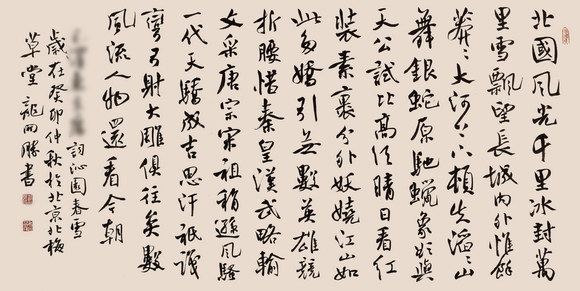 北國風光千里冰封萬
里雪飄望長城內外惟餘
莽々大河上下頓失滔々山
舞銀蛇原馳蠟象欲與
天公試比高須晴日看紅
裝素裹分外妖嬈江山如
此多嬌引无數英雄競
折腰惜秦皇漢武略輸
文采唐宗宋祖稍遜風騷
一代天驕成吉思汗祇識
彎弓射大雕俱往矣數
風流人物還看今朝
詞沁園春雪
歲在癸卯仲秋於北京北梅
草堂龍開勝書